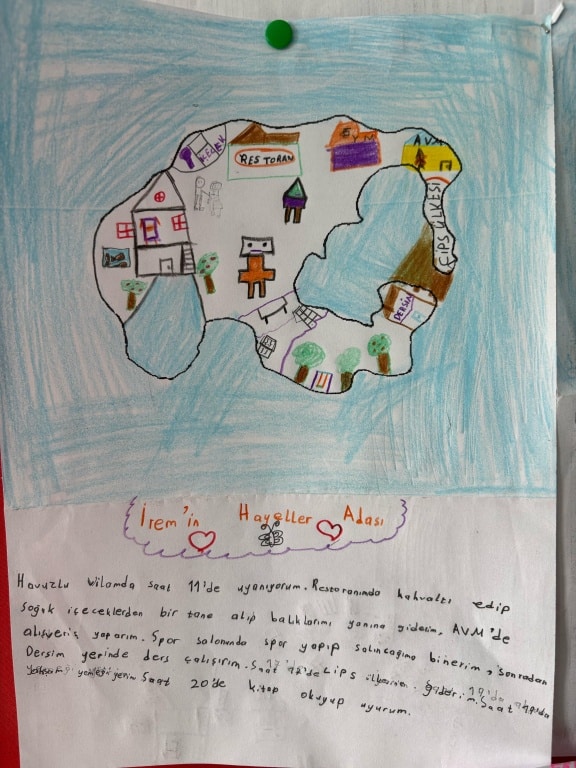 KEÇEK
RESTORAN
EYM
AVM
CİPS ÜLKESİ
DERSİM
İrem'in Hayeller Adası
Havuzlu vilamda saat 11'de uyanıyorum. Restoranımda kahvaltı edip
Soğuk içeceklerden bir tane alıp balıklarımı yanına giderim, AVM'de
alışveriş yaparım. Spor salonunda spor yapıp salıncağıma binerim, sonradan
Dersim yerinde ders çalışırım. Saat 'de Cips ülkesine giderim. Saat
yemeğiyerim Saat 20'de kitap okuyup uyurum.